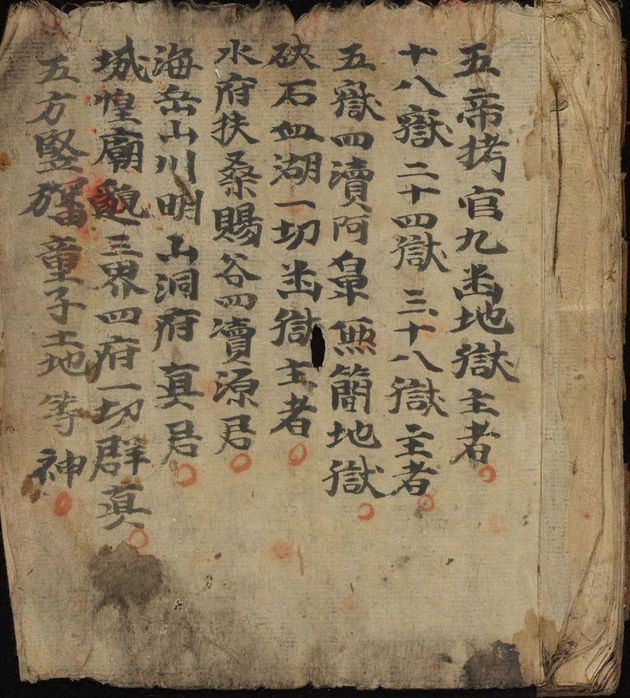 五帝拷官九幽地獄主者
十八嶽二十四獄三十八獄主者
五嶽四瀆阿鼻無簡地獄
硤石血湖一切幽獄主者
水府扶桑賜谷四瀆源君
海岳山川明山洞府真君
城惶廟貌三界四府一切群真
五方竪童子土地等神